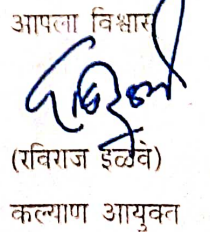 आपला विश्वास
(रविराज इळवे)
कल्याण आयुक्त